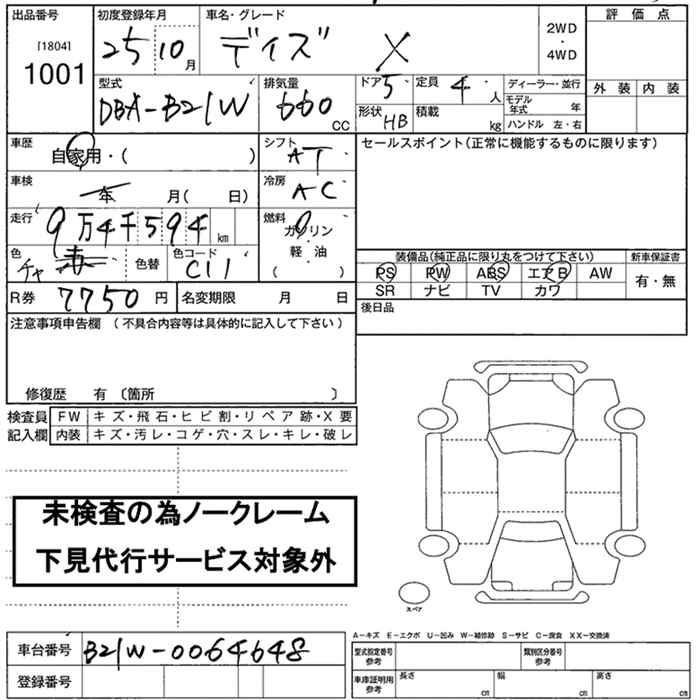 出品番号
[1804]
1001
初度登録年月
25 10月
車名・グレード
デイズ X
2WD
・
4WD
評価点
外装 内装
型式
DBA-B21W
排気量
660 CC
ドア 5
定員 4 人
形状 HB
積載 kg
ディーラー・並行
モデル年式 年
ハンドル 左・右
車歴
自家用・( )
シフト
AT
セールスポイント(正常に機能するものに限ります)
車検
年 月( 日)
冷房
AC
走行
9万4千594 km
燃料
ガソリン
軽・油
( )
色
チャ
色替
色コード
C11
装備品(純正品に限り丸をつけて下さい)
新車保証書
PS PW ABS エアB AW
SR ナビ TV カワ
有・無
R券 7750 円
名変期限 月 日
後日品
注意事項申告欄 (不具合内容等は具体的に記入して下さい)
修復歴 有 〔箇所 〕
検査員記入欄
FW キズ・飛石・ヒビ割・リペア跡・X要
内装 キズ・汚レ・コゲ・穴・スレ・キレ・破レ
未検査の為ノークレーム
下見代行サービス対象外
スペア
A-キズ E-エクボ U-凹み W-補修跡 S-サビ C-腐食 XX-交換済
車台番号 B21W-0064648
登録番号
型式指定番号
参考
類別区分番号
参考
車庫証明用
参考
長さ cm
幅 cm
高さ cm